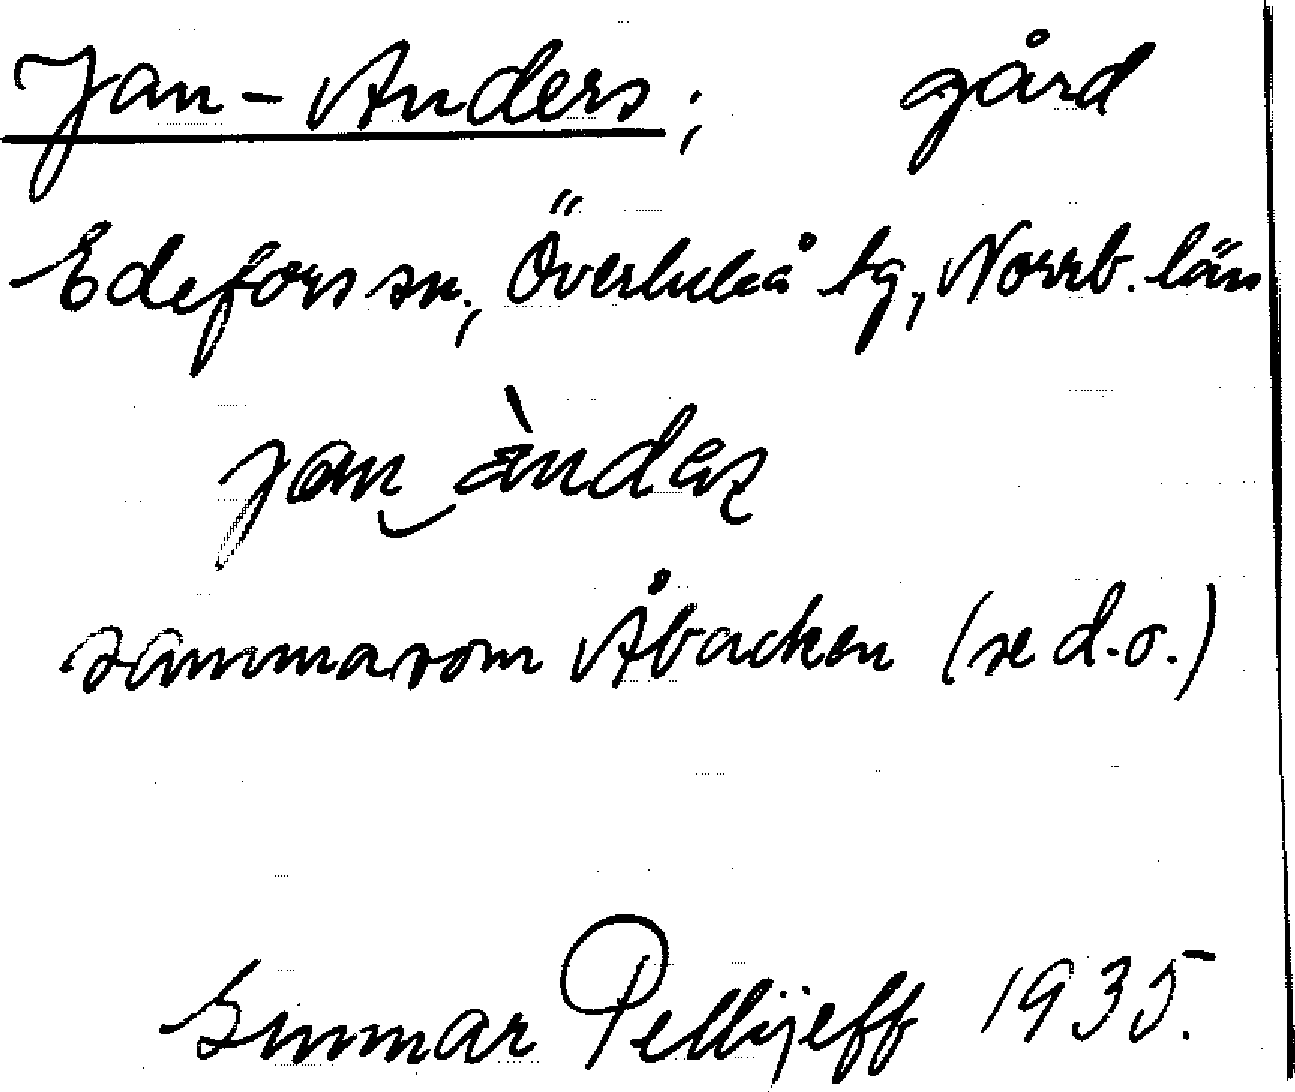 Jan-Anders; gård
Edefors sn, Överluleå tg, Norrb. län
jan‿àndaʂ
samma som Åbacken (se d.o.)
Gunnar Pellijeff 1935.